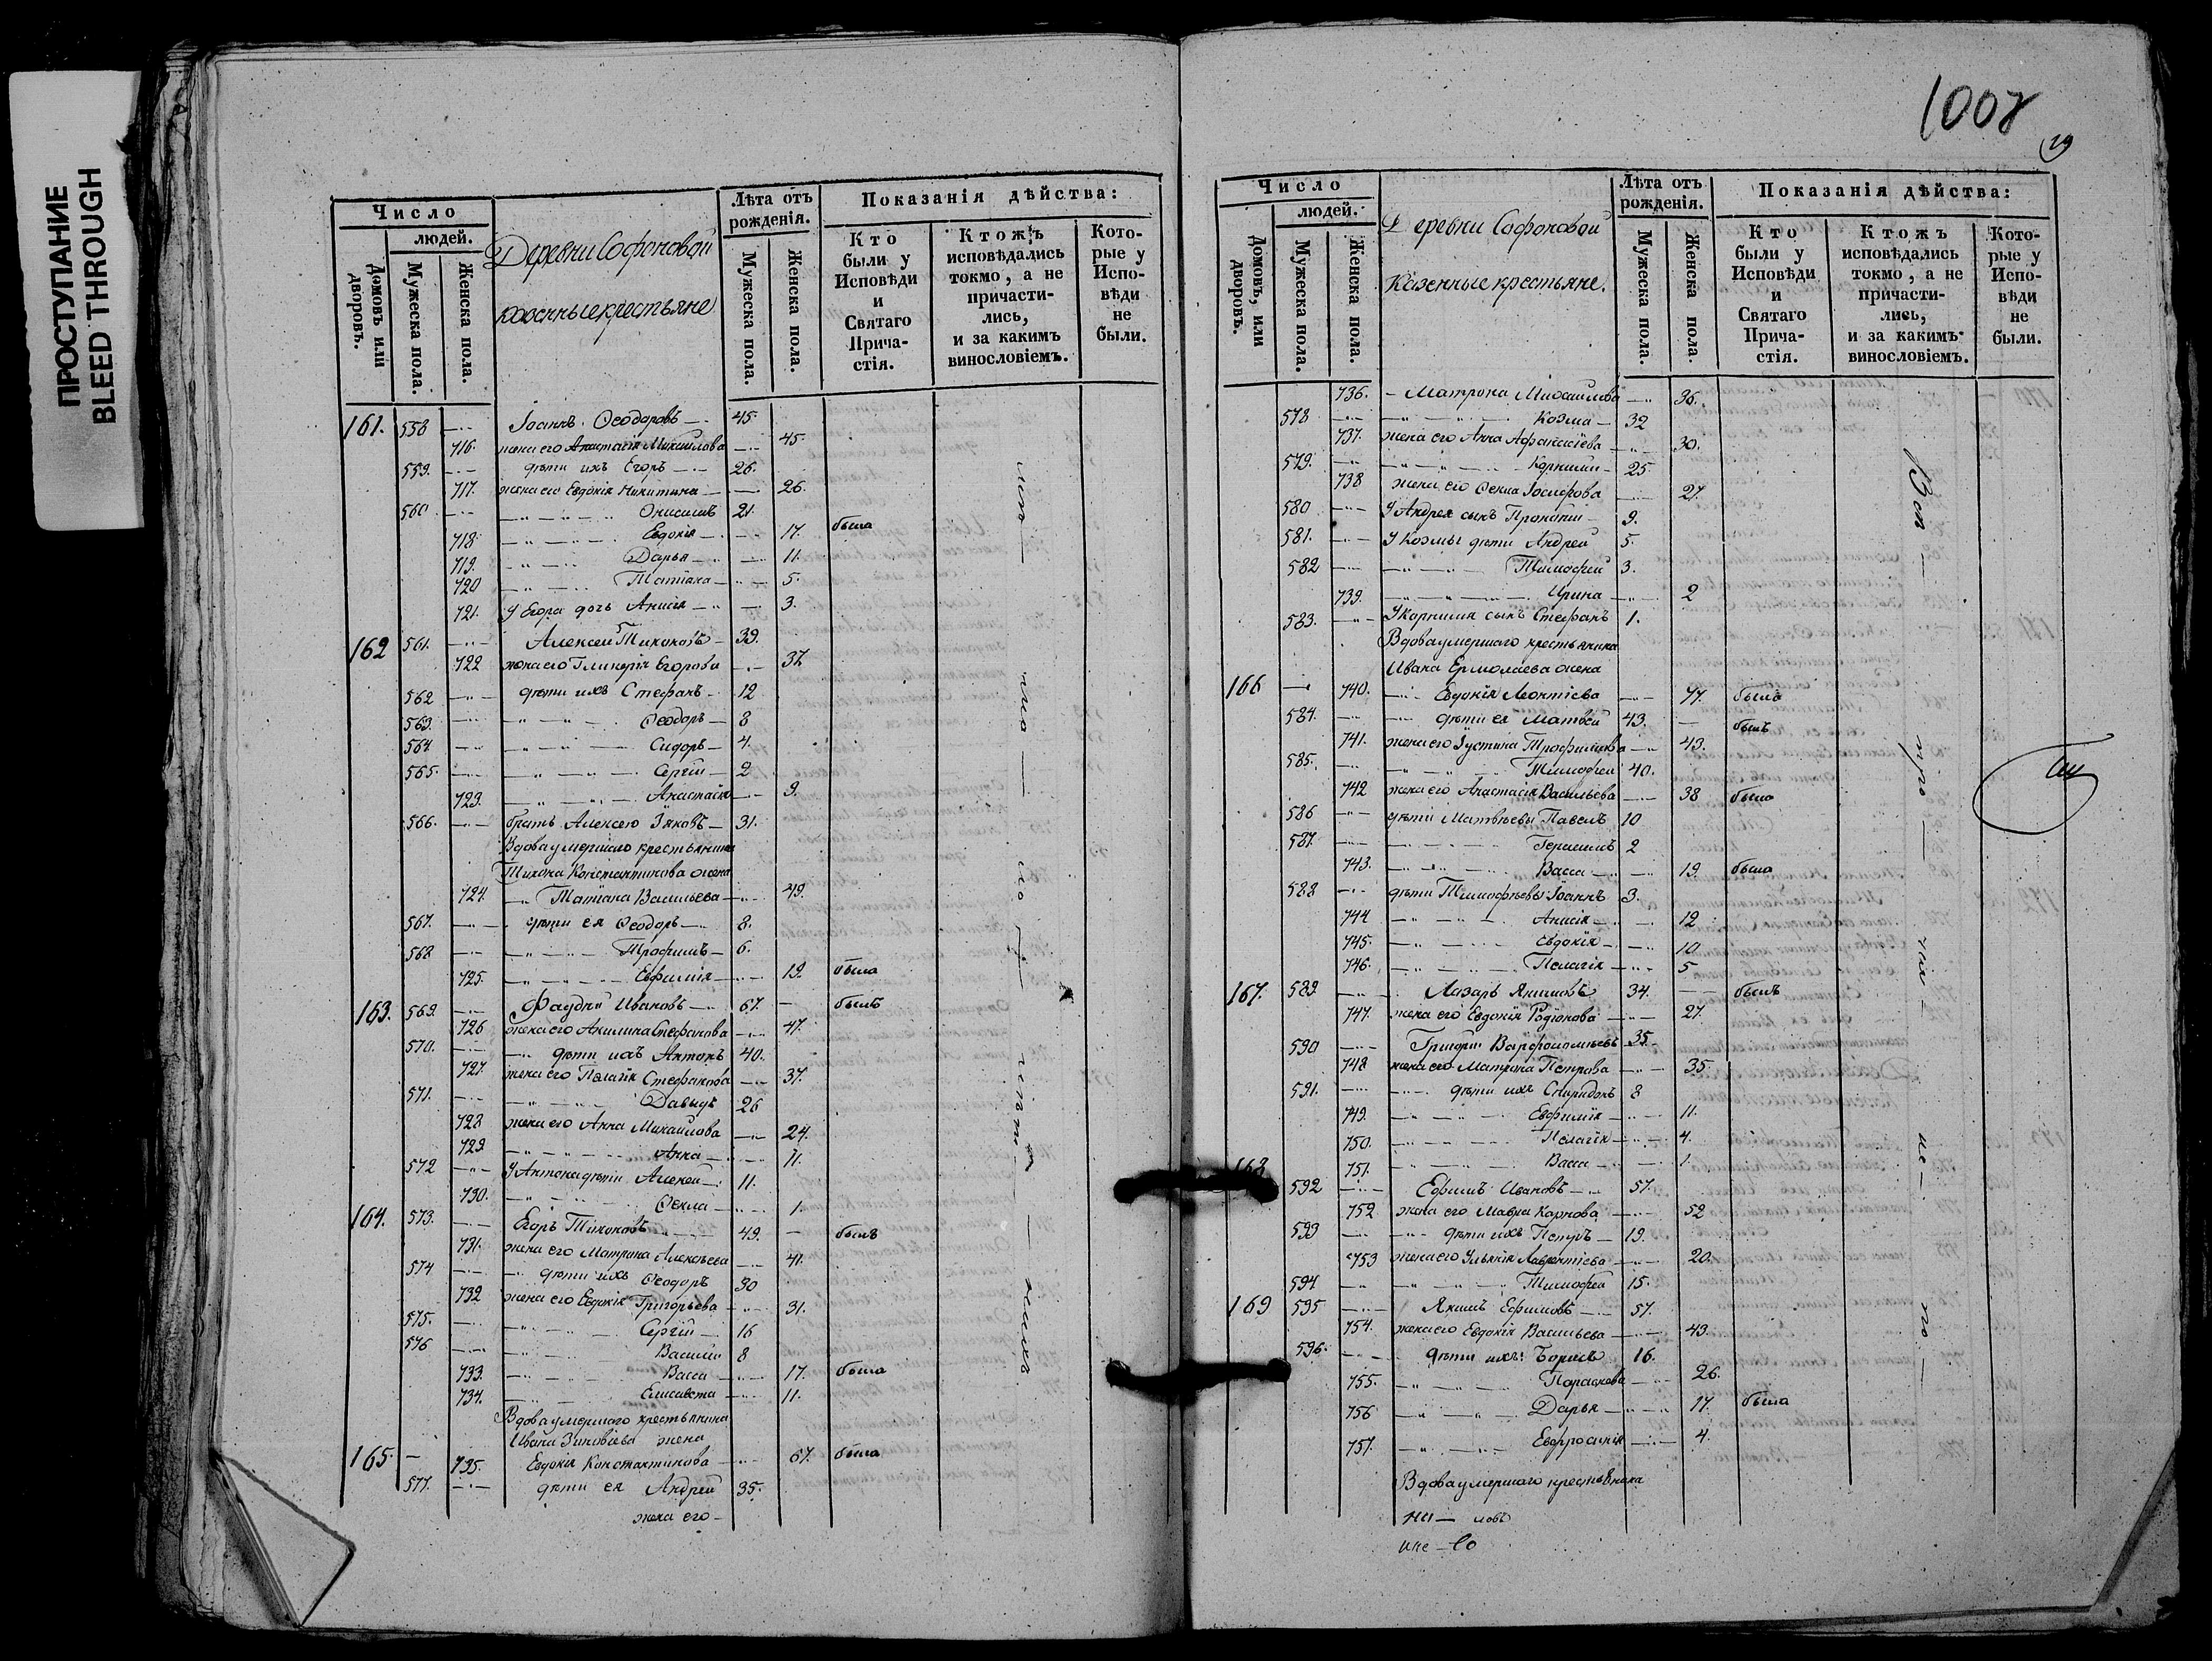 ПРОСТУПАНИЕ
BLEED THROUGH
Число
людей.
Домовъ или дворовъ.
Мужеска пола.
Женска пола.
Деревни Софоновой
казенные крестьяне
Лѣта отъ рожденія.
Мужеска пола.
Женска пола.
Показанія дѣйства:
Кто были у Исповѣди и Святаго Прича-стія.
Ктожъ исповѣдались токмо, а не причасти-лись, и за какимъ винословіемъ.
Кото-рые у Испо-вѣди не были.
161. 558 Іоаннъ Ѳеодоровъ 45.
716. жена его Анастасія Михаилова 45.
559. дѣти ихъ Егоръ 26.
717. жена его Евдокія Никитина 26.
560 Онисимъ 21.
718. Евдокія 17. была
719. Дарья 11.
720 Татіана 5.
721. У Егора дочь Анисія 3.
162 561. Алексей Тихоновъ 39.
722 жена его Гликерія Егорова 37.
562 дѣти ихъ Стефанъ 12
563. Ѳеодоръ 8
564. Сидоръ 4.
565. Сергій 2
723. Анастасія 9.
566. братъ Алексею Іяковъ 31.
Вдова умершаго крестьянина
Тихона Константинова жена
724. Татіана Васильева 49.
567. дѣти ея Ѳеодоръ 8.
568. Трофимъ 6.
725. Евфимія 19. была
163. 569. Фаддѣй Ивановъ 67. былъ
726 жена его Акилина Стефанова 47.
570. дѣти ихъ Антонъ 40.
727. жена его Пелагія Стефанова 37.
571. Давыдъ 26
728 жена его Анна Михаилова 24.
729. Анна 11.
572 У Антона дѣти Алексей 11.
730. Ѳекла 1.
164. 573. Егоръ Тихоновъ 49. былъ
731. жена его Матрона Алексѣева 41.
574 дѣти ихъ Ѳеодоръ 30
732 жена его Евдокія Григорьева 31.
575. Сергій 16
576 Василій 8
733. Васса 17. была
734. Елисавета 11.
Вдова умершаго крестьянина
Ивана Зиновіева жена
165. 735. Евдокія Константинова 67. была
577. дѣти ея Андрей 35.
жена его
1008
29
Число
людей.
Домовъ, или дворовъ.
Мужеска пола.
Женска пола.
Деревни Софоновой
Казенные крестьяне.
Лѣта отъ рожденія.
Мужеска пола.
Женска пола.
Показанія дѣйства:
Кто были у Исповѣди и Святаго Прича-стія.
Ктожъ исповѣдались токмо, а не причасти-лись, и за какимъ винословіемъ.
Кото-рые у Испо-вѣди не были.
736. Матрона Михаилова 36.
578 Козма 32
737. жена его Анна Афанасіева 30.
579. Корнилій 25
738 жена его Ѳекла Іосифова 27.
580 У Андрея сынъ Прокопій 9.
581. У Козмы дѣти Андрей 5.
582 Тимофей 3.
739. Ирина 2
583. У Корнилія сынъ Стефанъ 1.
Вдова умершаго крестьянина
Ивана Ермолаева жена
166 740. Евдокія Леонтіева 77. была
584. дѣти ея Матвей 43. былъ
741. жена его Іустина Трофимова 43.
585. Тимофей 40.
742 жена его Анастасія Васильева 38 была
586 дѣти Матвѣевы Павелъ 10
587. Герасимъ 2
743. Васса 19. была
588 дѣти Тимофѣевы Іоаннъ 3.
744 Анисія 12
745. Евдокія 10
746. Пелагія 5
167. 589 Лазарь Якимовъ 34. былъ
747. жена его Евдокія Родіонова 27.
590 Григорій Варфоломѣевъ 35.
748 жена его Матрона Петрова 35.
591. дѣти ихъ Спиридонъ 8
749. Евфимія 11.
750. Пелагія 4.
751. Васса 1.
168 592 Ефимъ Ивановъ 57.
752 жена его Мавра Карпова 52
593 дѣти ихъ Петръ 19.
753 жена его Ульянія Лаврентіева 20.
594 Тимофей 15.
169 595 Якимъ Ефимовъ 57.
754. жена его Евдокія Васильева 43.
596. дѣти ихъ: Борисъ 16.
755. Параскева 26.
756 Дарья 17. была
757. Евфросинія 4.
Вдова умершаго крестьянина